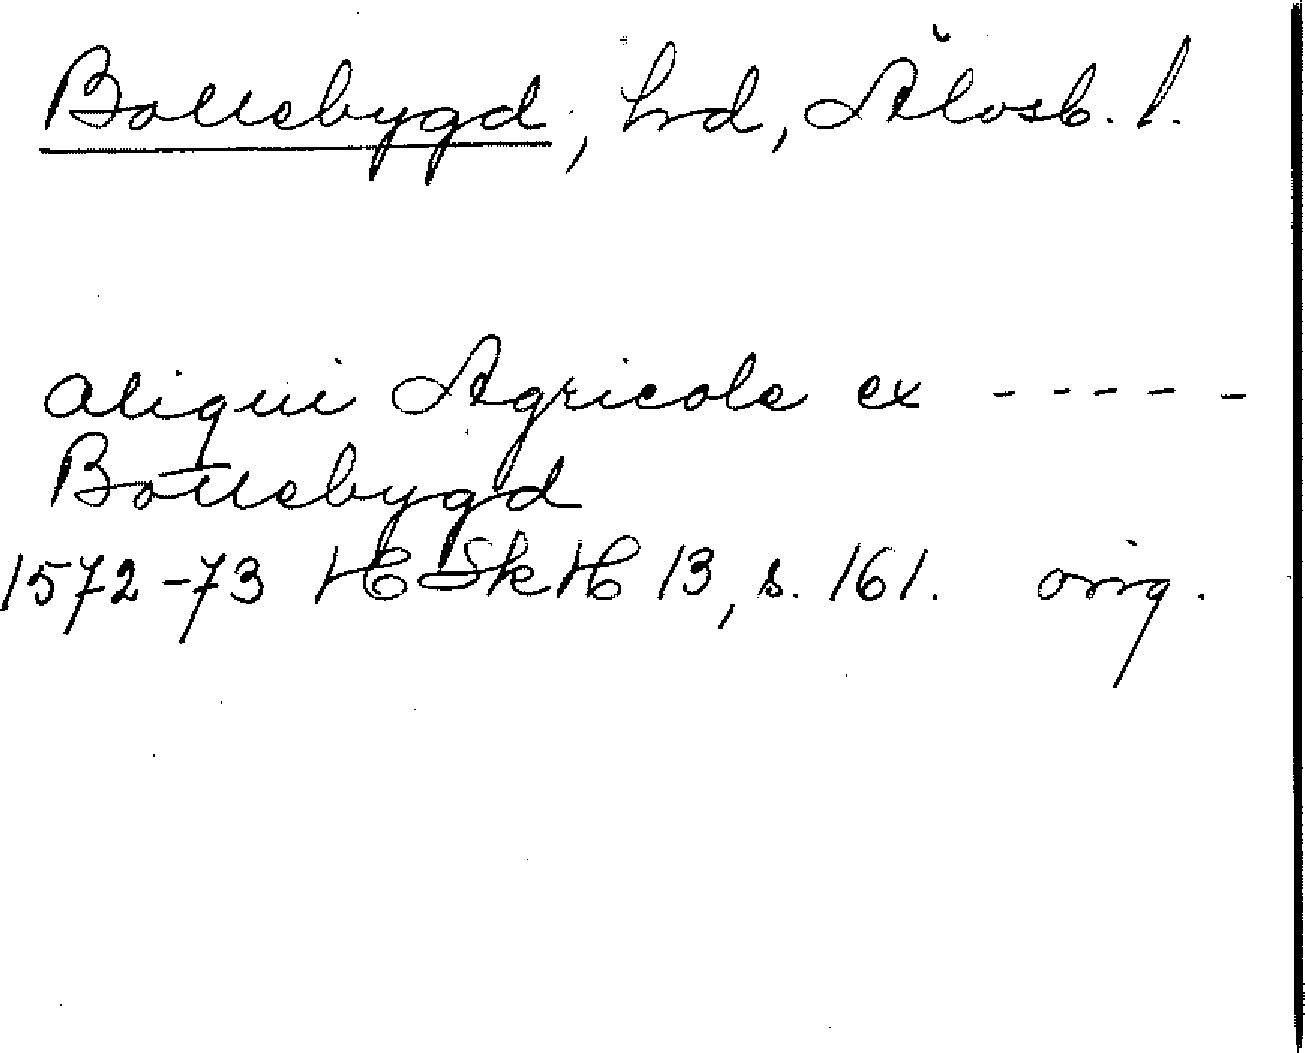 Bollebygd, hd, Älvsb. l.
aliqui Agricole ex - - - - -
Bollebygd
1572-73 HSkH 13, s. 161. orig.